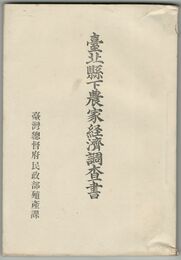 臺北縣下農家經濟調查書
臺灣總督府民政部殖產課